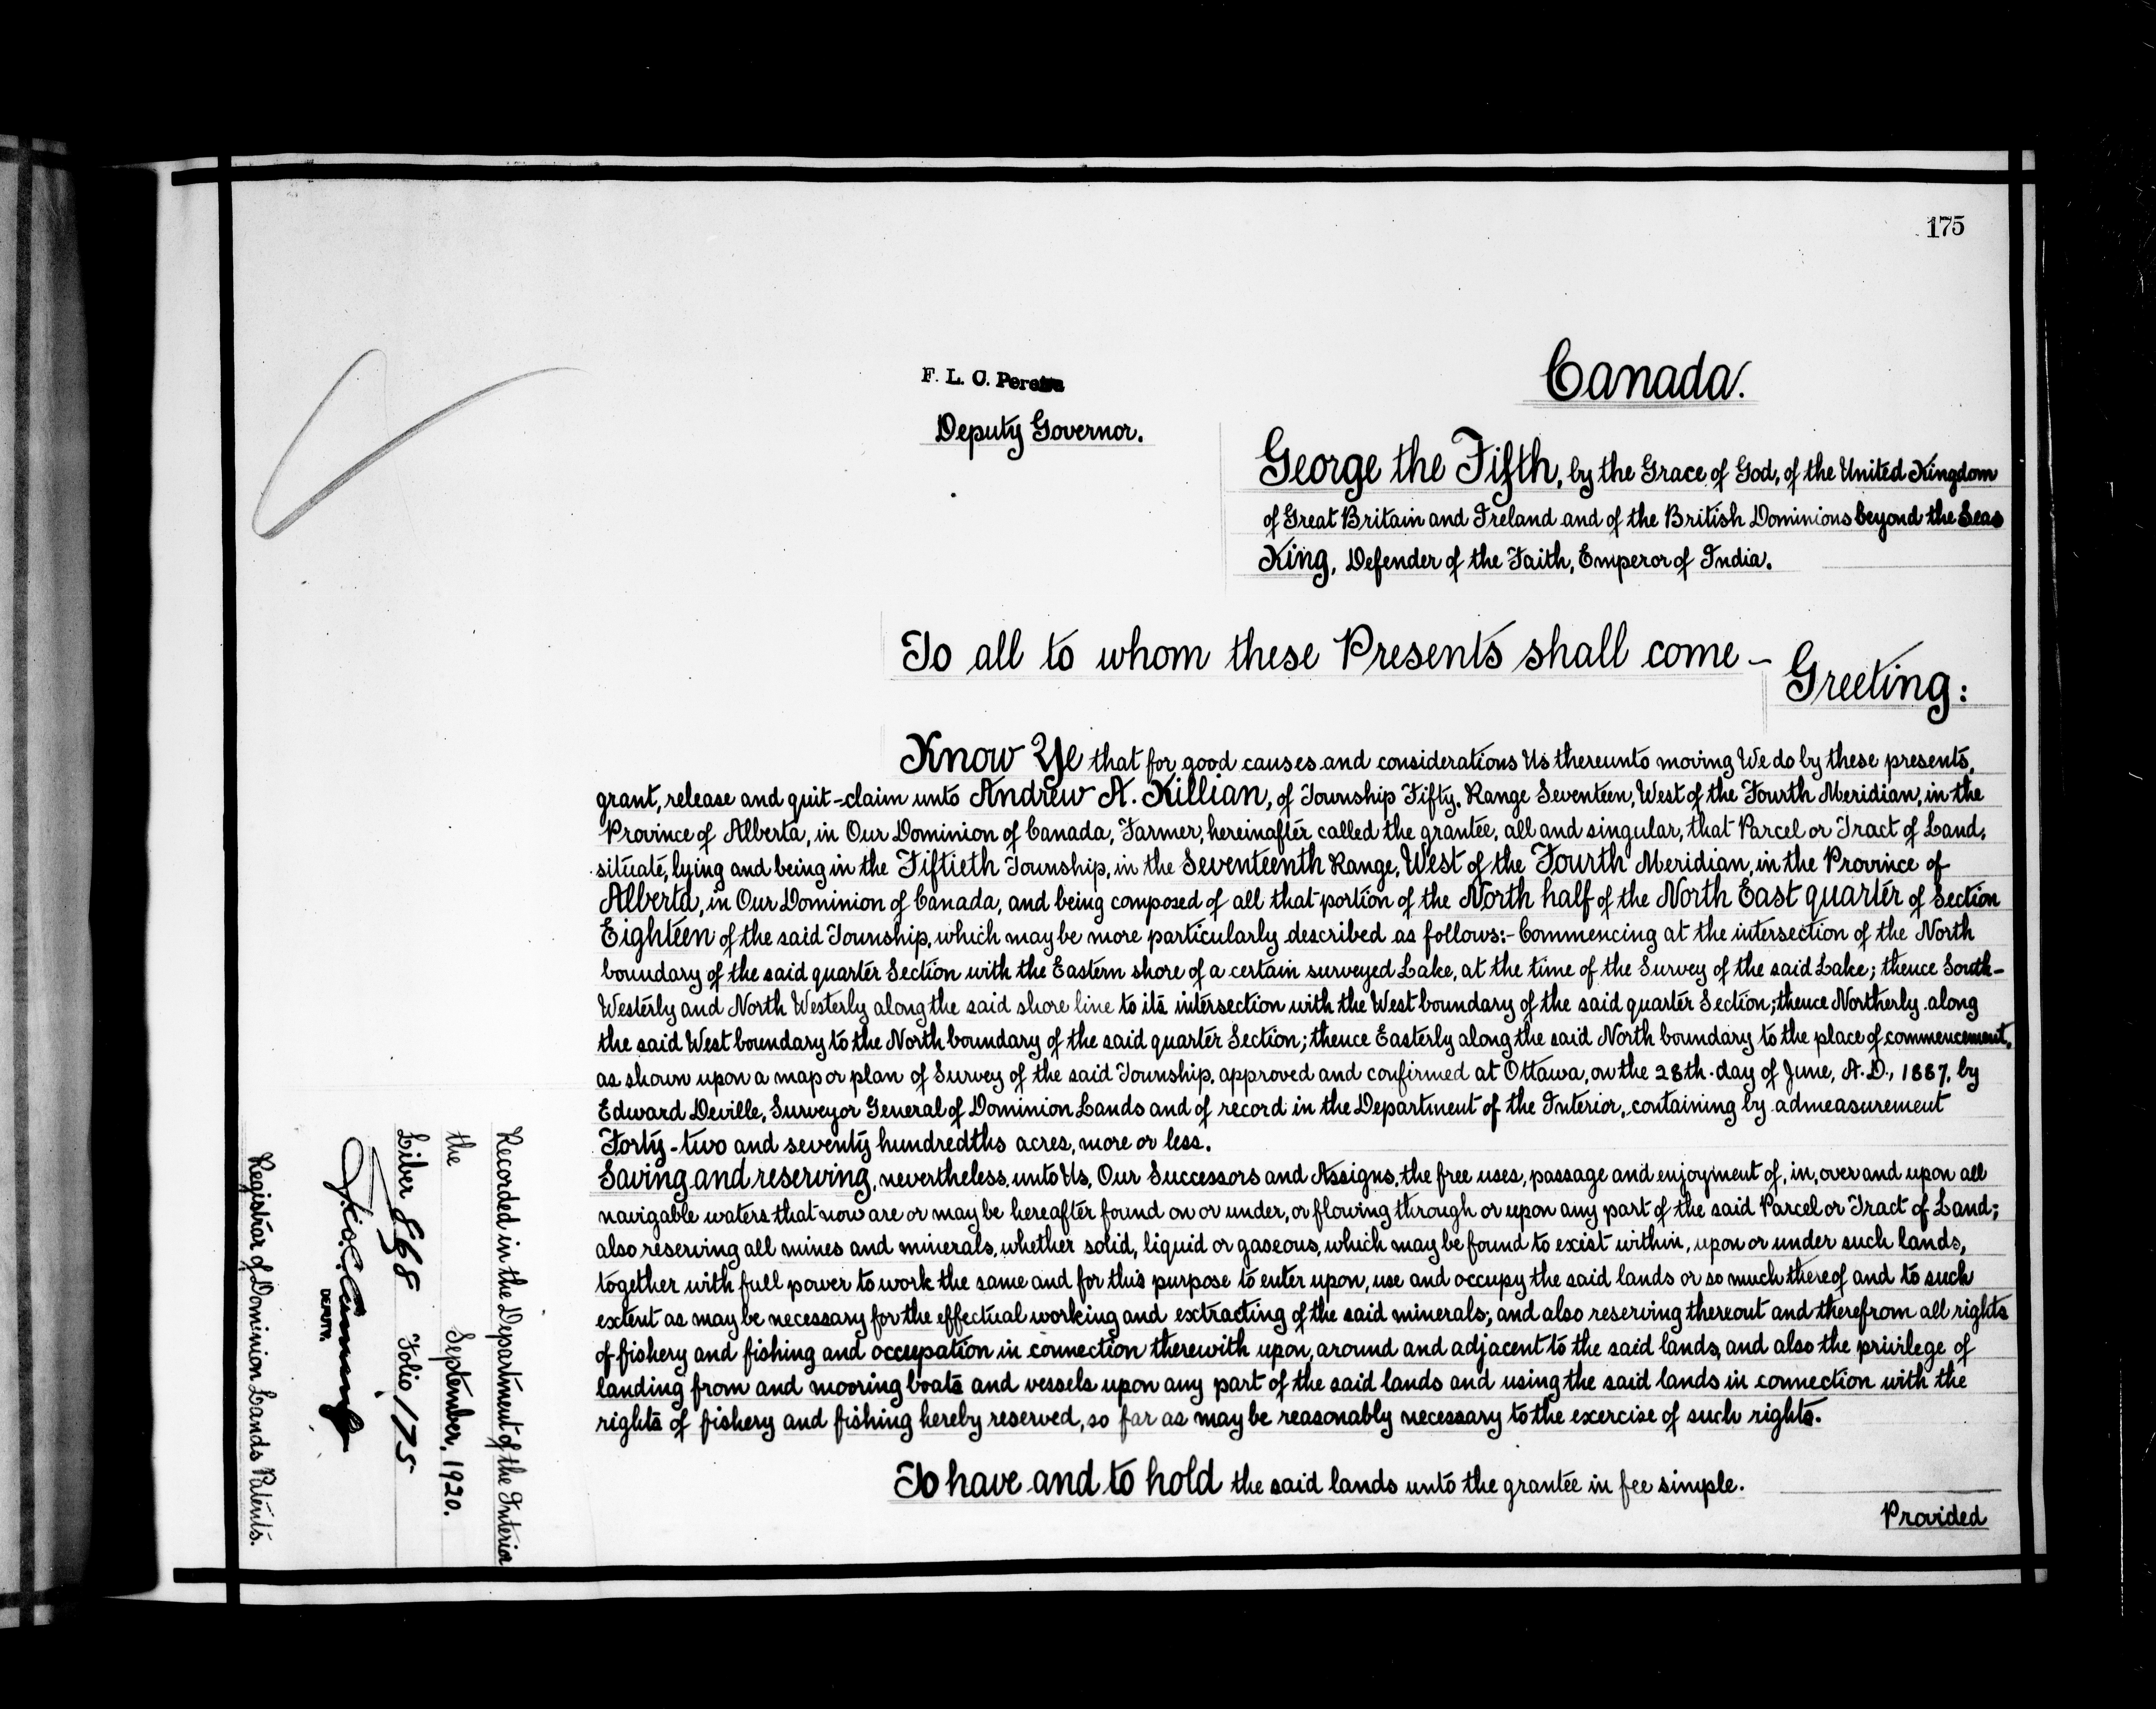 175
F. L. C. Pereira
Deputy Governor.
Canada.
George the Fifth, by the Grace of God, of the United Kingdom
of Great Britain and Ireland and of the British Dominions beyond the Seas
King, Defender of the Faith, Emperor of India.
To all to whom these Presents shall come –
Greeting:
Know Ye that for good causes and considerations Us thereunto moving We do by these presents,
grant, release and quit-claim unto Andrew A. Killian, of Township Fifty, Range Seventeen, West of the Fourth Meridian, in the
Province of Alberta, in Our Dominion of Canada, Farmer, hereinafter called the grantee, all and singular, that Parcel or Tract of Land,
situate, lying and being in the Fiftieth Township, in the Seventeenth Range, West of the Fourth Meridian, in the Province of
Alberta, in Our Dominion of Canada, and being composed of all that portion of the North half of the North East quarter of Section
Eighteen of the said Township, which may be more particularly described as follows:- Commencing at the intersection of the North
boundary of the said quarter Section with the Eastern shore of a certain surveyed Lake, at the time of the Survey of the said Lake; thence South-
Westerly and North Westerly along the said shore line to its intersection with the West boundary of the said quarter Section; thence Northerly along
the said West boundary to the North boundary of the said quarter Section; thence Easterly along the said North boundary to the place of commencement,
as shown upon a map or plan of Survey of the said Township, approved and confirmed at Ottawa, on the 28th. day of June, A.D., 1887, by
Edward Deville, Surveyor General of Dominion Lands and of record in the Department of the Interior, containing by admeasurement
Forty-two and seventy hundredths acres, more or less.
Saving and reserving, nevertheless, unto Us, Our Successors and Assigns, the free uses, passage and enjoyment of, in, over and upon all
navigable waters that now are or may be hereafter found on or under, or flowing through or upon any part of the said Parcel or Tract of Land;
also reserving all mines and minerals, whether solid, liquid or gaseous, which may be found to exist within, upon or under such lands,
together with full power to work the same and for this purpose to enter upon, use and occupy the said lands or so much thereof and to such
extent as may be necessary for the effectual working and extracting of the said minerals; and also reserving thereout and therefrom all rights
of fishery and fishing and occupation in connection therewith upon, around and adjacent to the said lands, and also the privilege of
landing from and mooring boats and vessels upon any part of the said lands and using the said lands in connection with the
rights of fishery and fishing hereby reserved, so far as may be reasonably necessary to the exercise of such rights.
To have and to hold the said lands unto the grantee in fee simple.
Provided
Recorded in the Department of the Interior
the September, 1920.
Liber 868 Folio 175
DEPUTY.
Registrar of Dominion Lands Patents.